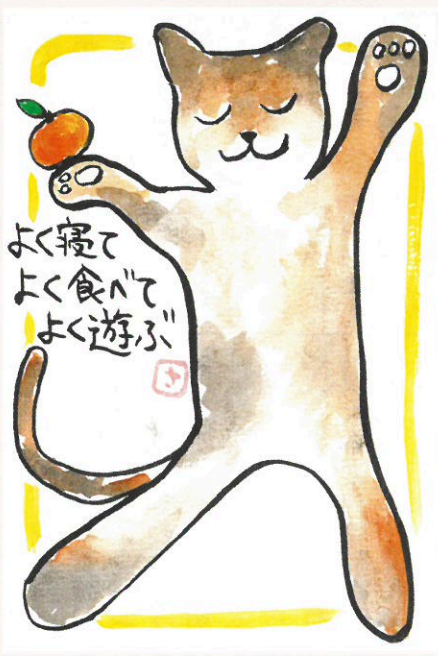 よく寝て
よく食べて
よく遊ぶ